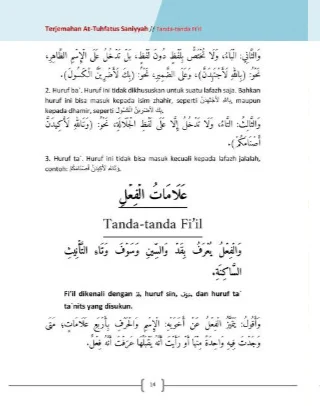 Terjemahan At-Tuhfatus Saniyyah // Tanda-tanda fi'il
وَالثَّانِي: الْبَاءُ، وَلَا تَخْتَصُّ بِلَفْظٍ دُونَ لَفْظٍ، بَلْ تَدْخُلُ عَلَى الْإِسْمِ الظَّاهِرِ،
نَحْوُ: (بِاللهِ لَأَجْتَهِدَنَّ)، وَعَلَى الضَّمِيرِ، نَحْوُ: (بِكَ لَأَضْرِبَنَّ الْكَسُولَ).
2. Huruf ba`. Huruf ini tidak dikhususkan untuk suatu lafazh saja. Bahkan
huruf ini bisa masuk kepada isim zhahir, seperti بِاللهِ لَأَجْتَهِدَنَّ maupun
kepada dhamir, seperti بِكَ لَأَضْرِبَنَّ الْكَسُولَ.
وَالثَّالِثُ: التَّاءُ، وَلَا تَدْخُلُ إِلَّا عَلَى لَفْظِ الْجَلَالَةِ، نَحْوُ: (وَتَاللهِ لَأَكِيدَنَّ
أَصْنَامَكُمْ).
3. Huruf ta`. Huruf ini tidak bisa masuk kecuali kepada lafazh jalalah,
contoh: وَتَاللهِ لَأَكِيدَنَّ أَصْنَامَكُمْ.
عَلَامَاتُ الْفِعْلِ
Tanda-tanda Fi'il
وَالْفِعْلُ يُعْرَفُ بِقَدْ وَالسِّينِ وَسَوْفَ وَتَاءِ التَّأْنِيثِ
السَّاكِنَةِ.
Fi'il dikenali dengan قَدْ, huruf sin, سَوْفَ, dan huruf ta`
ta`nits yang disukun.
وَأَقُولُ: يَتَمَيَّزُ الْفِعْلُ عَنْ أَخَوَيْهِ: الْإِسْمِ وَالْحَرْفِ بِأَرْبَعِ عَلَامَاتٍ؛ مَتَى
وَجَدْتَ فِيهِ وَاحِدَةً مِنْهَا أَوْ رَأَيْتَ أَنَّهُ يَقْبَلُهَا عَرَفْتَ أَنَّهُ فِعْلٌ.
14